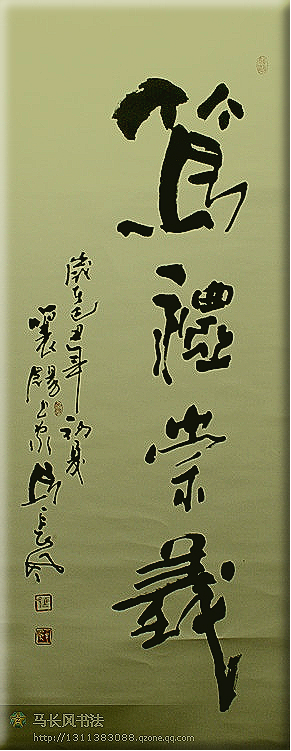 篤禮崇義
歲在己丑年初夏
襄陽馬長風
马长风书法
http://1311383088.qzone.qq.com